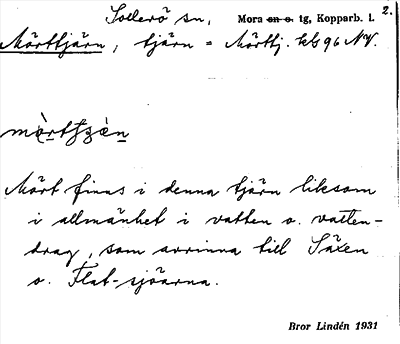 Sollerö sn, Mora sn o. tg, Kopparb. l. 2.
Mörttjärn, tjärn = Mörttj. kbl 96 NV.
Mört finns i denna tjärn liksom
i allmänhet i vatten o. vatten-
drag, som avrinna till Säxen
o. Flat-sjöarna.
Bror Lindén 1931